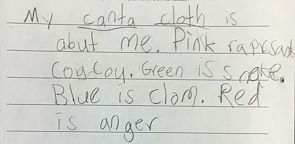 My canta cloth is
abut me. Pink raprasands
Coy Coy. Green is snake.
Blue is clam. Red
is anger